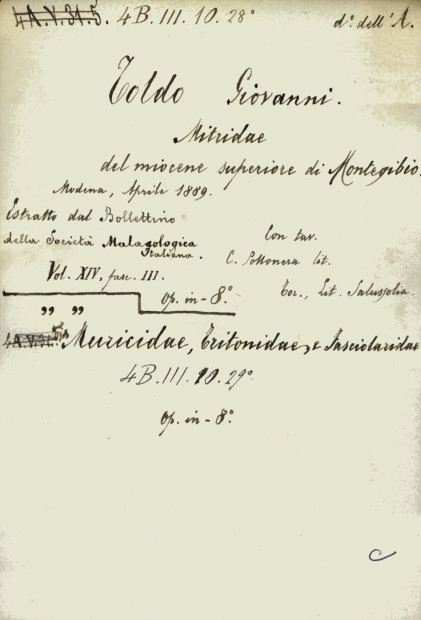 4A.V.31.5. 4B.III.10.28° d° dell'A.
Toldo Giovanni.
Mitridae
del miocene superiore di Montegibio.
Modena, Aprile 1889.
Estratto dal Bollettino
della Società Malagologica
Italiana.
Con tav.
C. Pollonera lit.
Vol. XIV, fasc. III.
Tor., Lit. Salussolia.
op. in-8°.
„ „
Muricidae, Tritonidae, e Fasciolaridae
4B.III.10.29°
op. in-8°.
C